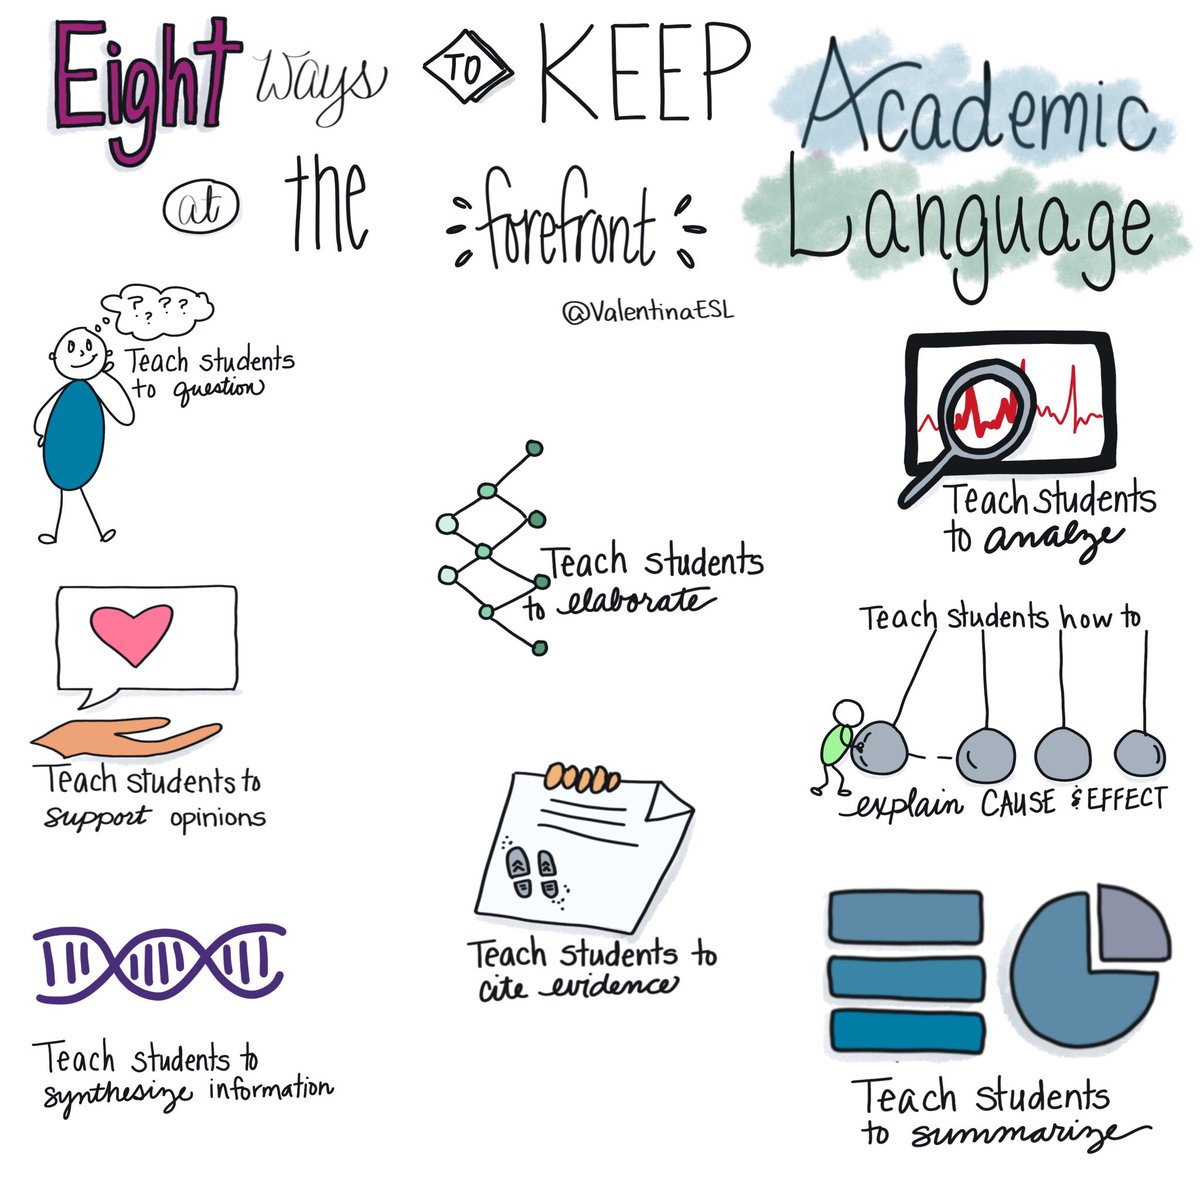 Eight Ways TO KEEP Academic
at the forefront Language
@ValentinaESL
? ? ? ?
?
Teach students
to question
Teach students
to analze
Teach students
to elaborate
Teach students how to
explain CAUSE & EFFECT
Teach students to
support opinions
Teach students to
cite evidence
Teach students to
synthesize information
Teach students
to summarize